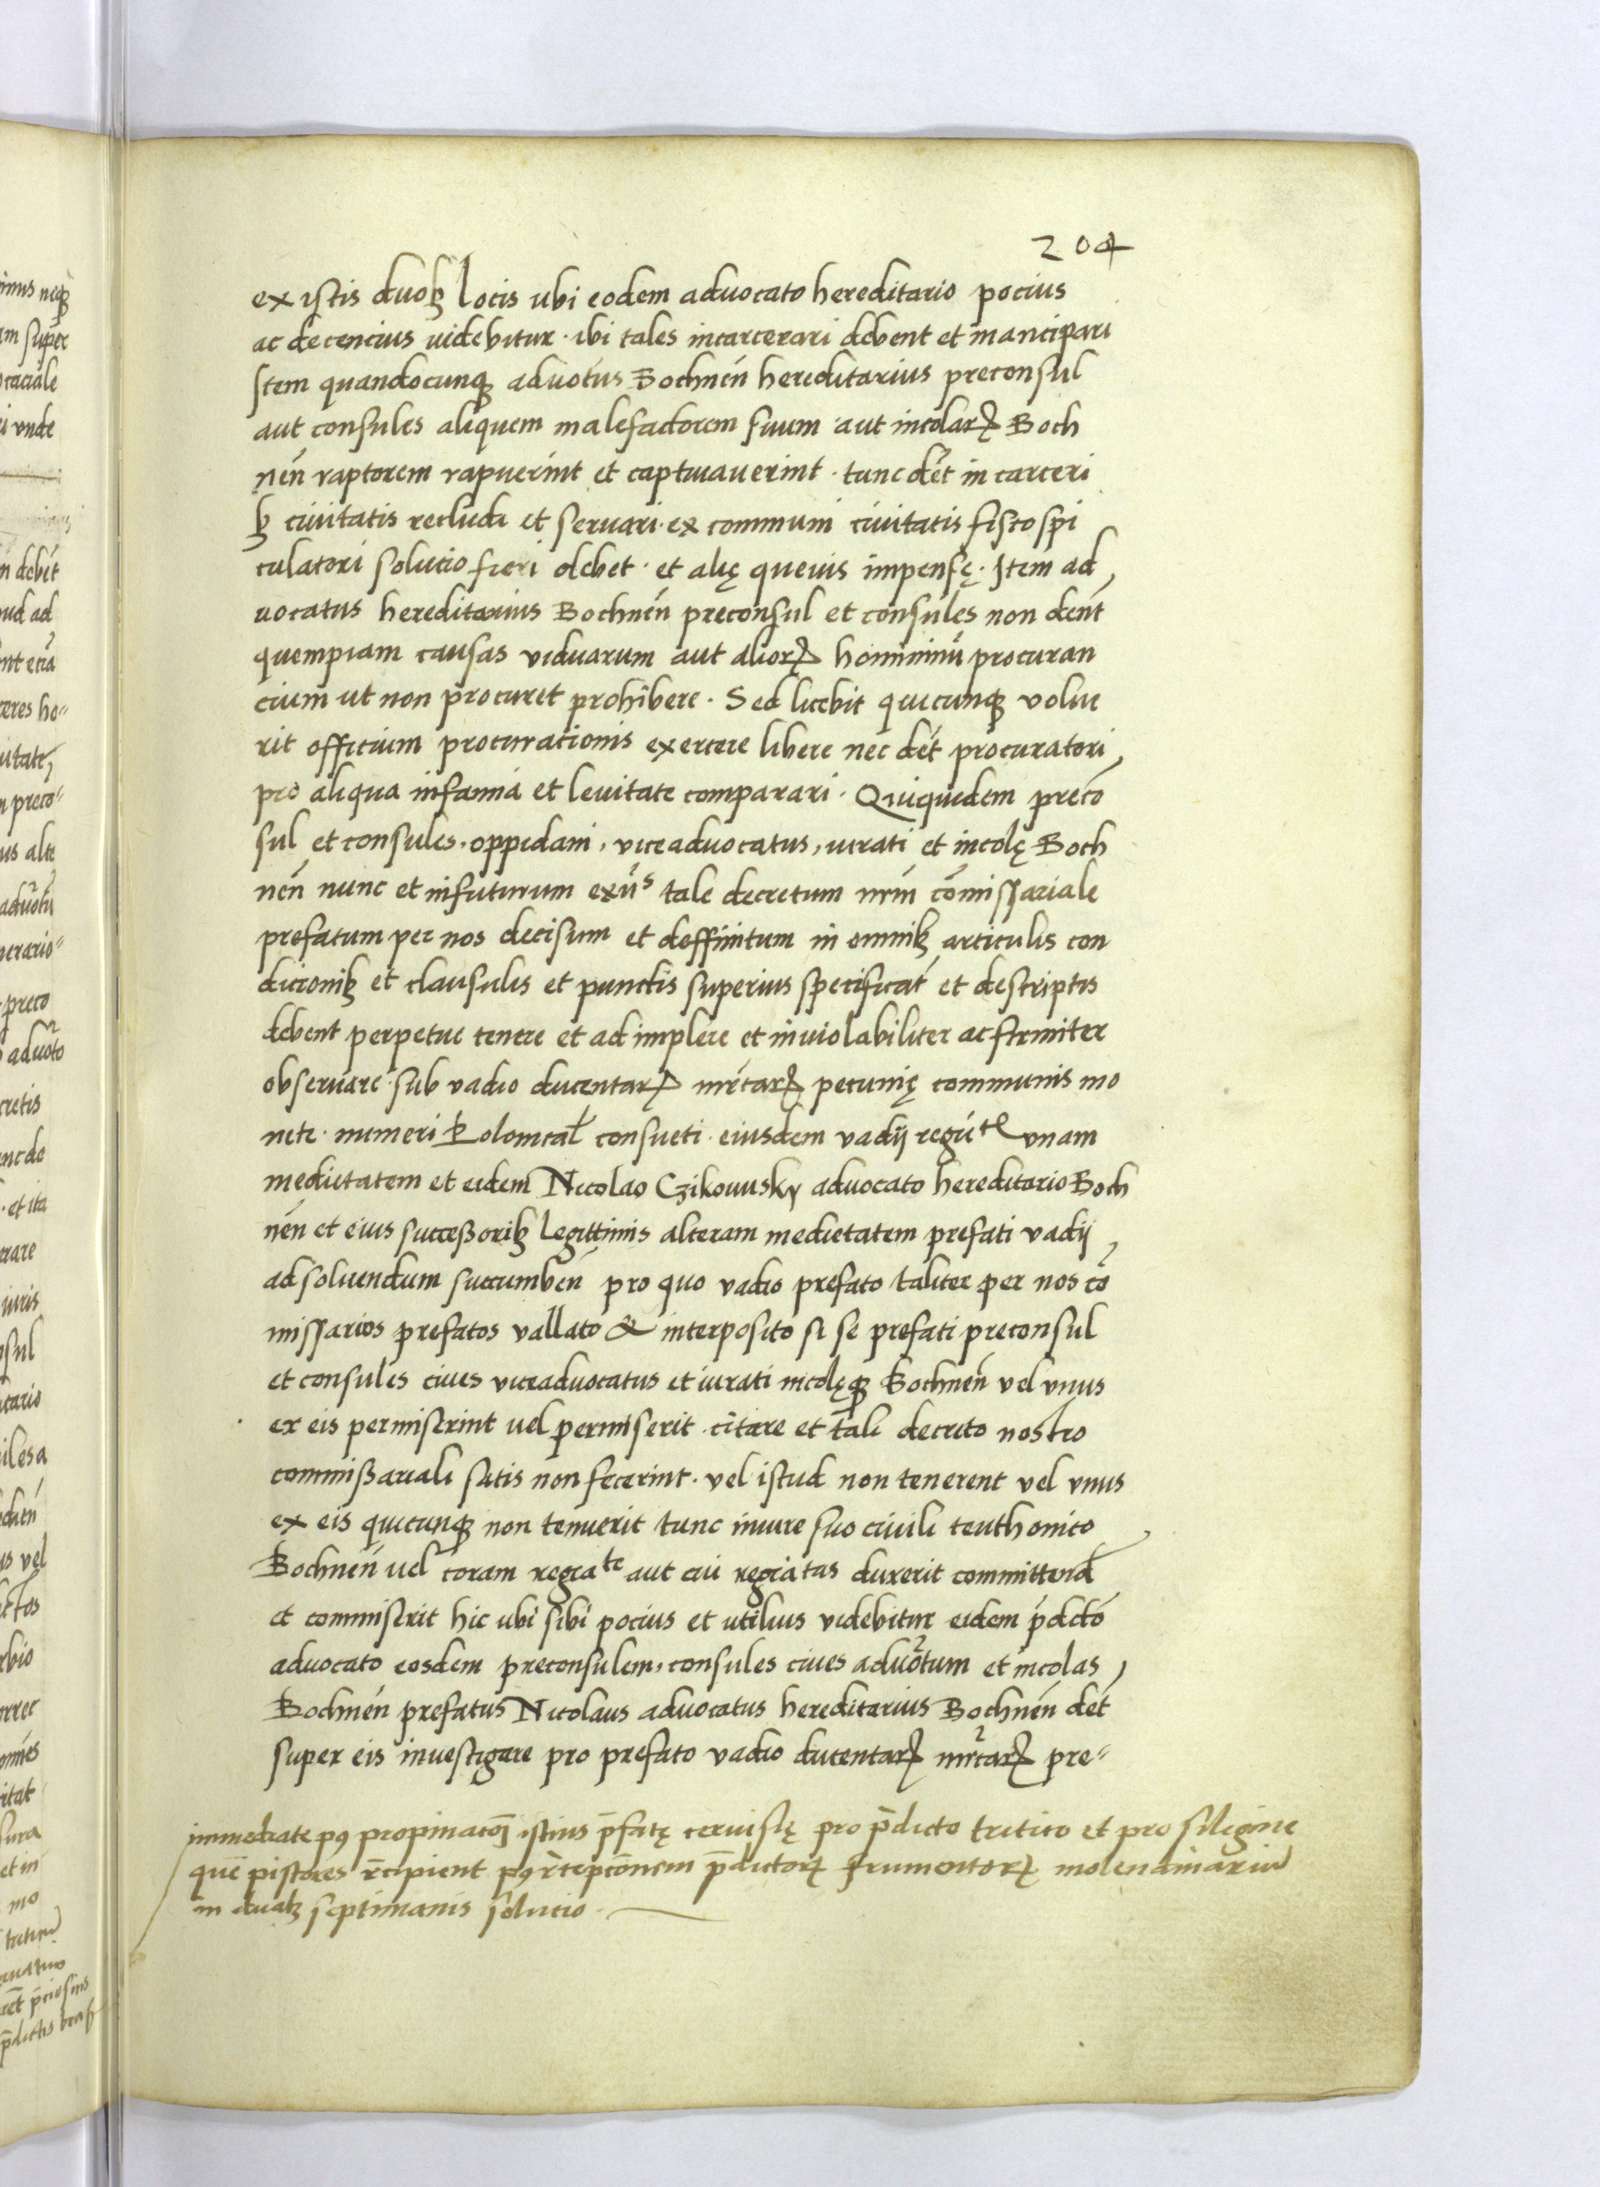 204
ex istis duobꝫ locis ubi eodem advocato hereditario pocius
ac decencius videbitur · ibi tales incarcerari debent et mancipari
Item quandocunqꝫ advotus Bochneñ hereditarius preconsul
aut consules aliquem malefactorem suum aut incolaꝝ Boch
neñ raptorem rapuerint et captivaverint · tunc dēt in carceri
bꝫ civitatis recludi et servari · ex communi civitatis fisco spi
culatori solucio fieri debet · et alię quevis impensę · Item ad
vocatus hereditarius Bochneñ preconsul et consules non deñt
quempiam causas viduarum aut alioꝝ hominnū procuran
cium ut non procuret prohibere · Sed licebit quicunqꝫ volue
rit officium procuracionis exercere libere nec dēt procuratori
pro aliqua infamia et levitate comparari · Quiquidem precō
sul et consules, oppidani, viceadvocatus, iurati et incolę Boch
neñ nunc et infuturum exñs tale decretum nr̄m cōmissariale
prefatum per nos decisum et deffinitum in omnibꝫ articulis con
dicionibꝫ et clausulis et punctis superius specificat̄ et descriptis
debent perpetue tenere et adimplere et inviolabiliter ac firmiter
observare · sub vadio ducentaꝝ mrcaꝝ pecunię communis mo
nete · numeri Polonical̄ consueti · eiusdem vadij regie mti unam
medietatem et eidem Nicolao Czikowsky advocato hereditario Boch
neñ et eius successoribꝫ legittimis alteram medietatem prefati vadij
ad solvendum succumbeñ pro quo vadio prefato taliter per nos cō
missarios prefatos vallato & interposito si se prefati preconsul
et consules cives viceadvocatus et iurati incolęqꝫ Bochneñ vel unus
ex eis permiserint vel permiserit · citare et tali decreto nostro
commissariali satis non fecerint · vel istud non tenerent vel unus
ex eis quicunqꝫ non tenuerit tunc in iure suo civili teuthonico
Bochneñ vel coram regia te aut cui regia tas duxerit committend̄
et commiserit hic ubi sibi pocius et utilius videbitur eidem p̄dctō
advocato eosdem preconsulem, consules cives advōtum et incolas
Bochneñ prefatus Nicolaus advocatus hereditarius Bochneñ dēt
super eis investigare pro prefato vadio ducentaꝝ mrcaꝝ pre⸗
immediate pꝰ propinacōꝫ istius p̄fatę cervisię pro p̄dicto tritico et pro siligine
quē pistores r̄cipient pꝰ r̄cepcōnem p̄dictoꝝ frumentoꝝ molendinariū
in duabꝫ septimanis solucio